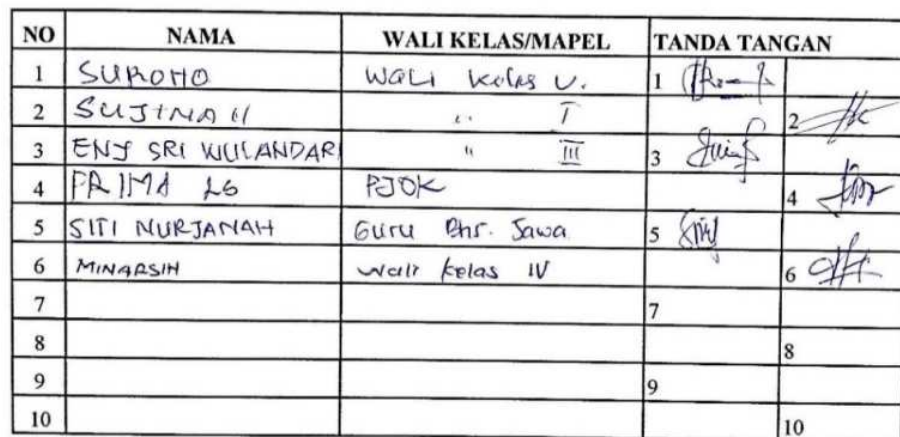 NO NAMA WALI KELAS/MAPEL TANDA TANGAN
1 SUROHO Wali Kelas V. 1
2 SUJINAH " I 2
3 ENY SRI WULANDARI " III 3
4 PRIMA LG PJOK 4
5 SITI NURJANAH Guru Bhs. Jawa 5
6 MINARSIH Wali kelas IV 6
7 7
8 8
9 9
10 10